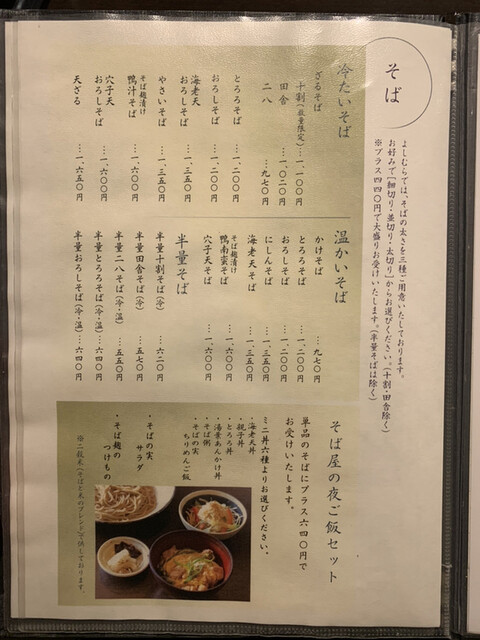 そば
よしむらでは、そばの太さを三種ご用意いたしております。
お好みで[細切り・並切り・太切り]からお選びください。(十割・田舎除く)
※プラス四四〇円で大盛りお受けいたします。(半量そばは除く)
冷たいそば
ざるそば
十割(数量限定)…一、一〇〇円
田舎 …一、〇二〇円
二八 …九七〇円
とろろそば …一、二〇〇円
おろしそば …一、二〇〇円
海老天
おろしそば …一、三五〇円
やさいそば …一、三五〇円
そば麹漬け
鴨汁そば …一、六〇〇円
穴子天
おろしそば …一、六〇〇円
天ざる …一、六五〇円
温かいそば
かけそば …九七〇円
とろろそば …一、二〇〇円
おろしそば …一、二〇〇円
にしんそば …一、三五〇円
海老天そば …一、三五〇円
そば麹漬け
鴨南蛮そば …一、六〇〇円
穴子天そば …一、六〇〇円
半量そば
半量十割そば(冷) …六二〇円
半量田舎そば(冷) …五七〇円
半量二八そば(冷・温) …五五〇円
半量とろろそば(冷・温)…六四〇円
半量おろしそば(冷・温)…六四〇円
そば屋の夜ご飯セット
単品のそばにプラス六四〇円で
お受けいたします。
ミニ丼六種よりお選びください。
・海老天丼
・親子丼
・とろろ丼
・湯葉あんかけ丼
・そば粥
・そばの実
ちりめんご飯
・そばの実
サラダ
・そば麹の
つけもの
※二穀米(そばと米のブレンド)で供しております。